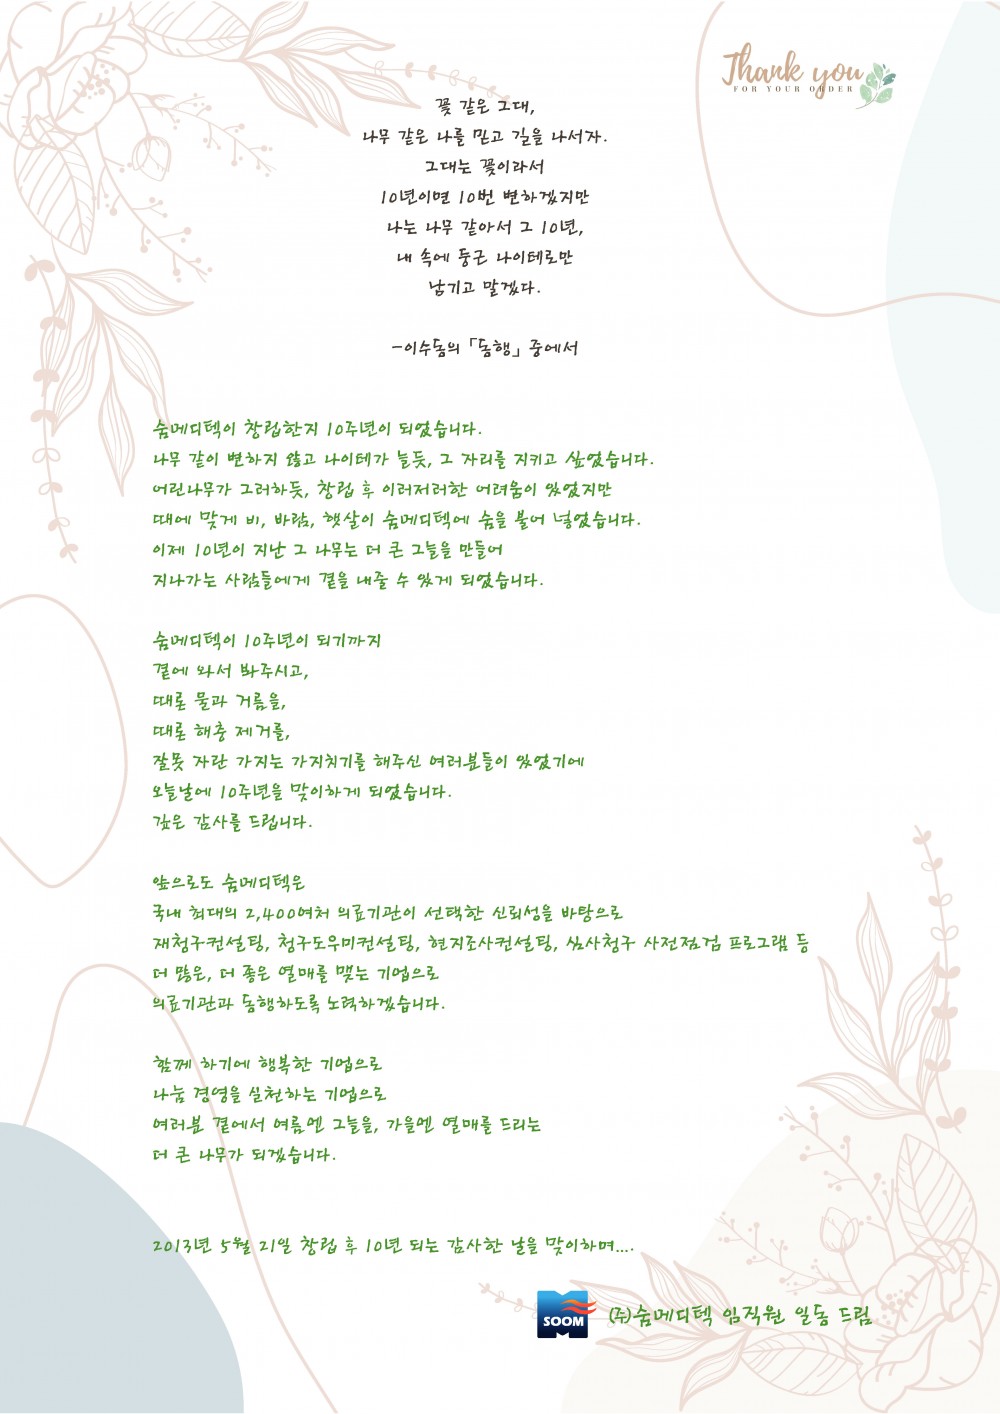 Thank you
FOR YOUR ORDER
꽃 같은 그대,
나무 같은 나를 믿고 길을 나서자.
그대는 꽃이라서
10년이면 10번 변하겠지만
나는 나무 같아서 그 10년,
내 속에 둥근 나이테로만
남기고 말겠다.
-이수동의 「동행」 중에서
숨메디텍이 창립한지 10주년이 되었습니다.
나무 같이 변하지 않고 나이테가 늘듯, 그 자리를 지키고 싶었습니다.
어린나무가 그러하듯, 창립 후 이러저러한 어려움이 있었지만
때에 맞게 비, 바람, 햇살이 숨메디텍에 숨을 불어 넣었습니다.
이제 10년이 지난 그 나무는 더 큰 그늘을 만들어
지나가는 사람들에게 곁을 내줄 수 있게 되었습니다.
숨메디텍이 10주년이 되기까지
곁에 와서 봐주시고,
때론 물과 거름을,
때론 해충 제거를,
잘못 자란 가지는 가지치기를 해주신 여러분들이 있었기에
오늘날에 10주년을 맞이하게 되었습니다.
깊은 감사를 드립니다.
앞으로도 숨메디텍은
국내 최대의 2,400여처 의료기관이 선택한 신뢰성을 바탕으로
재청구컨설팅, 청구도우미컨설팅, 현지조사컨설팅, 심사청구 사전점검 프로그램 등
더 많은, 더 좋은 열매를 맺는 기업으로
의료기관과 동행하도록 노력하겠습니다.
함께 하기에 행복한 기업으로
나눔 경영을 실천하는 기업으로
여러분 곁에서 여름엔 그늘을, 가을엔 열매를 드리는
더 큰 나무가 되겠습니다.
2013년 5월 21일 창립 후 10년 되는 감사한 날을 맞이하며....
SOOM
(주)숨메디텍 임직원 일동 드림